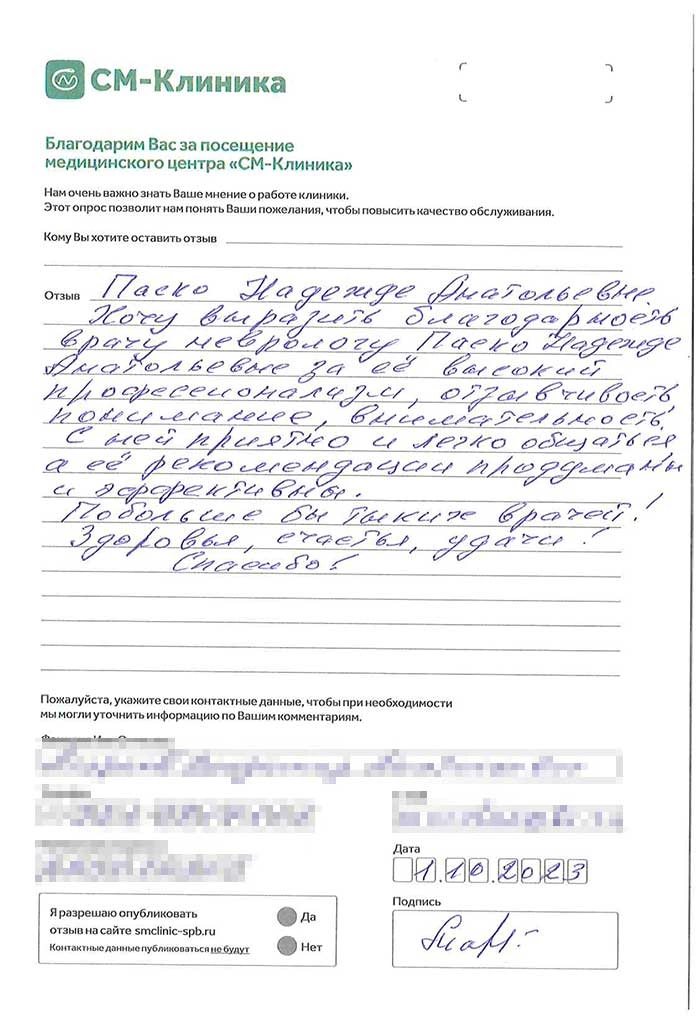 СМ-Клиника
Благодарим Вас за посещение
медицинского центра «СМ-Клиника»
Нам очень важно знать Ваше мнение о работе клиники.
Этот опрос позволит нам понять Ваши пожелания, чтобы повысить качество обслуживания.
Кому Вы хотите оставить отзыв
Отзыв Паско Надежде Анатольевне.
Хочу выразить благодарность
врачу неврологу Паско Надежде
Анатольевне за её высокий
профессионализм, отзывчивость,
понимание, внимательность.
С ней приятно и легко общаться
а её рекомендации продуманы
и эффективны.
Побольше бы таких врачей!
Здоровья, счастья, удачи!
Спасибо!
Пожалуйста, укажите свои контактные данные, чтобы при необходимости
мы могли уточнить информацию по Вашим комментариям.
Дата
1.10.2023
Подпись
Я разрешаю опубликовать
отзыв на сайте smclinic-spb.ru
Контактные данные публиковаться не будут
Да
Нет